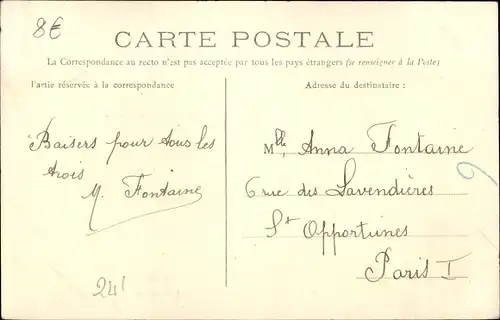 8€
CARTE POSTALE
La Correspondance au recto n'est pas acceptée par tous les pays étrangers (se renseigner à la Poste)
Partie réservée à la correspondance
Adresse du destinataire :
Baisers pour tous les
trois
M. Fontaine
Mlle Anna Fontaine
6 rue des Lavendières
St Opportunes
Paris I
9
241